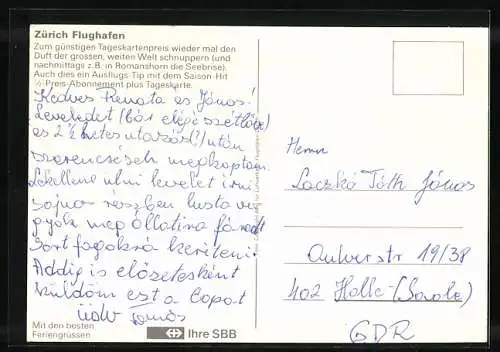 Zürich Flughafen
Zum günstigen Tageskartenpreis wieder mal den
Duft der grossen, weiten Welt schnuppern (und
nachmittags z.B. in Romanshorn die Seebrise).
Auch dies ein Ausflugs-Tip mit dem Saison-Hit
½-Preis-Abonnement plus Tageskarte.
Kedves Renata és János!
Leveledet (bár eléggé szétlőve)
és 2½ hetes utazás(!) után
szerencsésen megkaptam.
Le kellene ülni levelet írni
sajnos részben lusta va-
gyok meg állatira fáradt
sort fogok rá keríteni
Addig is előzetesként
küldöm ezt a lapot
üdv János
Mit den besten
Feriengrüssen
Ihre SBB
Herrn
Laczkó Tóth János
str 19/38
402 Halle (Saale)
GDR